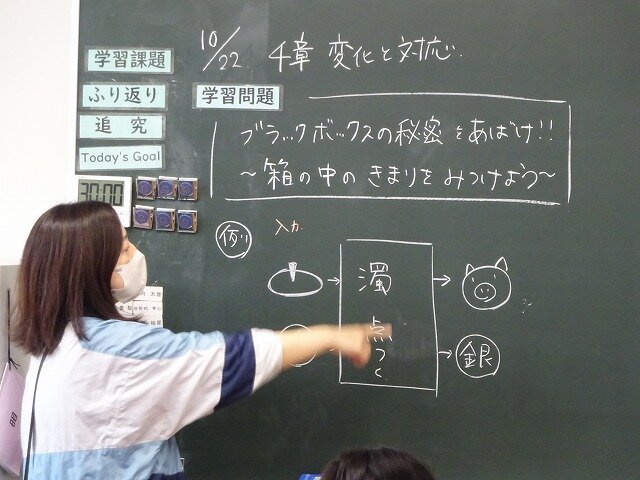 10/22 4章 変化と対応
学習課題
ふり返り
学習問題
追究
Today's Goal
ブラックボックスの秘密をあばけ!!
~箱の中のきまりをみつけよう~
30:00
例
入力
濁点つく
銀